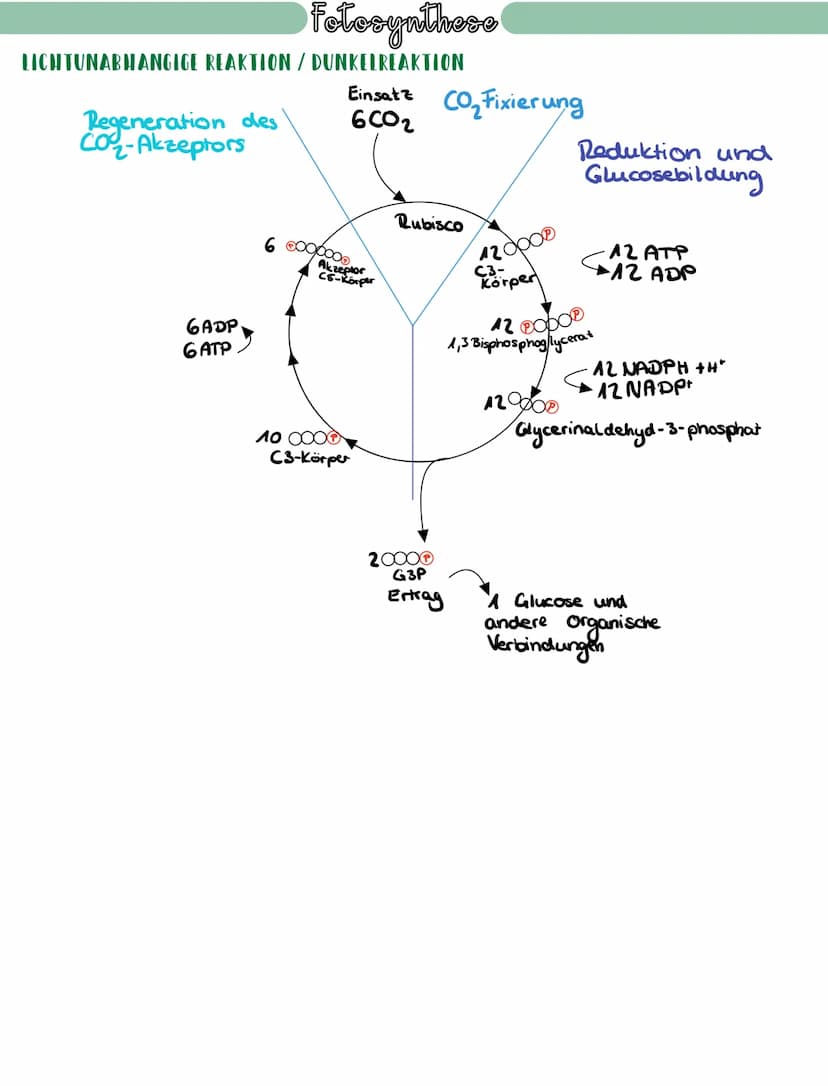 Fotosynthese
LICHTUNABHANGIGE REAKTION / DUNKELREAKTION
Einsatz
6CO₂
CO₂ Fixierung
Regeneration des
CO₂-Akzeptors
Reduktion und
Glucosebildung
Rubisco
6 P P
Akzeptor
C5-Körper
12 P
C3-
Körper
12 ATP
12 ADP
12 P P
1,3 Bisphosphoglycerat
6 ADP
6 ATP
12 NADPH + H⁺
12 NADP⁺
12 P
Glycerinaldehyd-3-phosphat
10 P
C3-Körper
2 P
G3P
Ertrag
1 Glucose und
andere Organische
Verbindungen